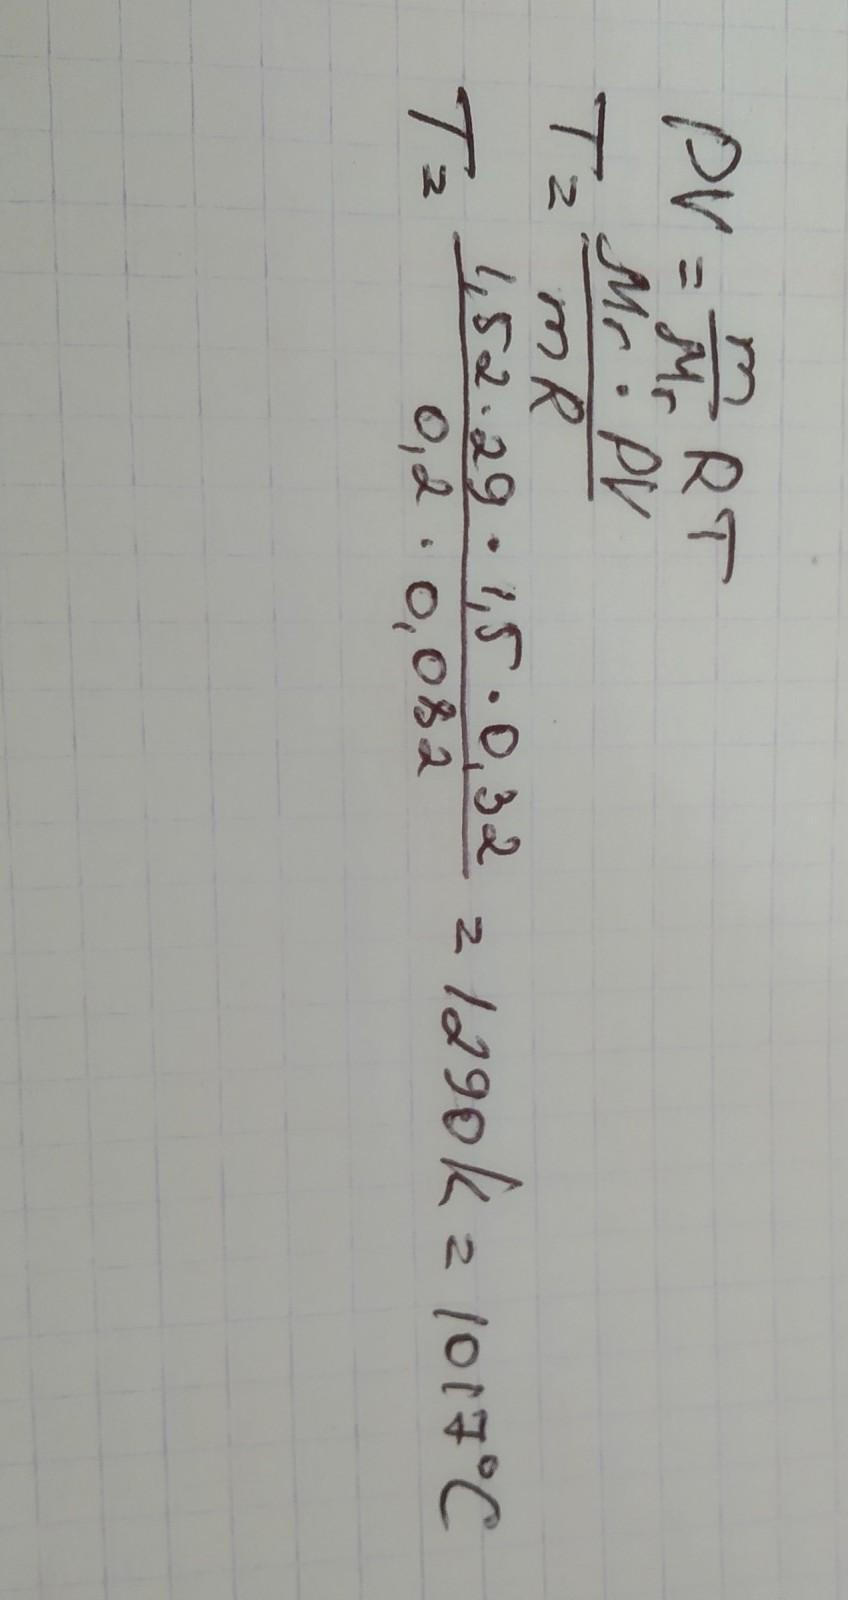 PV = m/Mr RT
T = Mr · PV / mR
T = 1,52 · 29 · 1,5 · 0,32 / 0,2 · 0,082 = 1290K = 1017°C